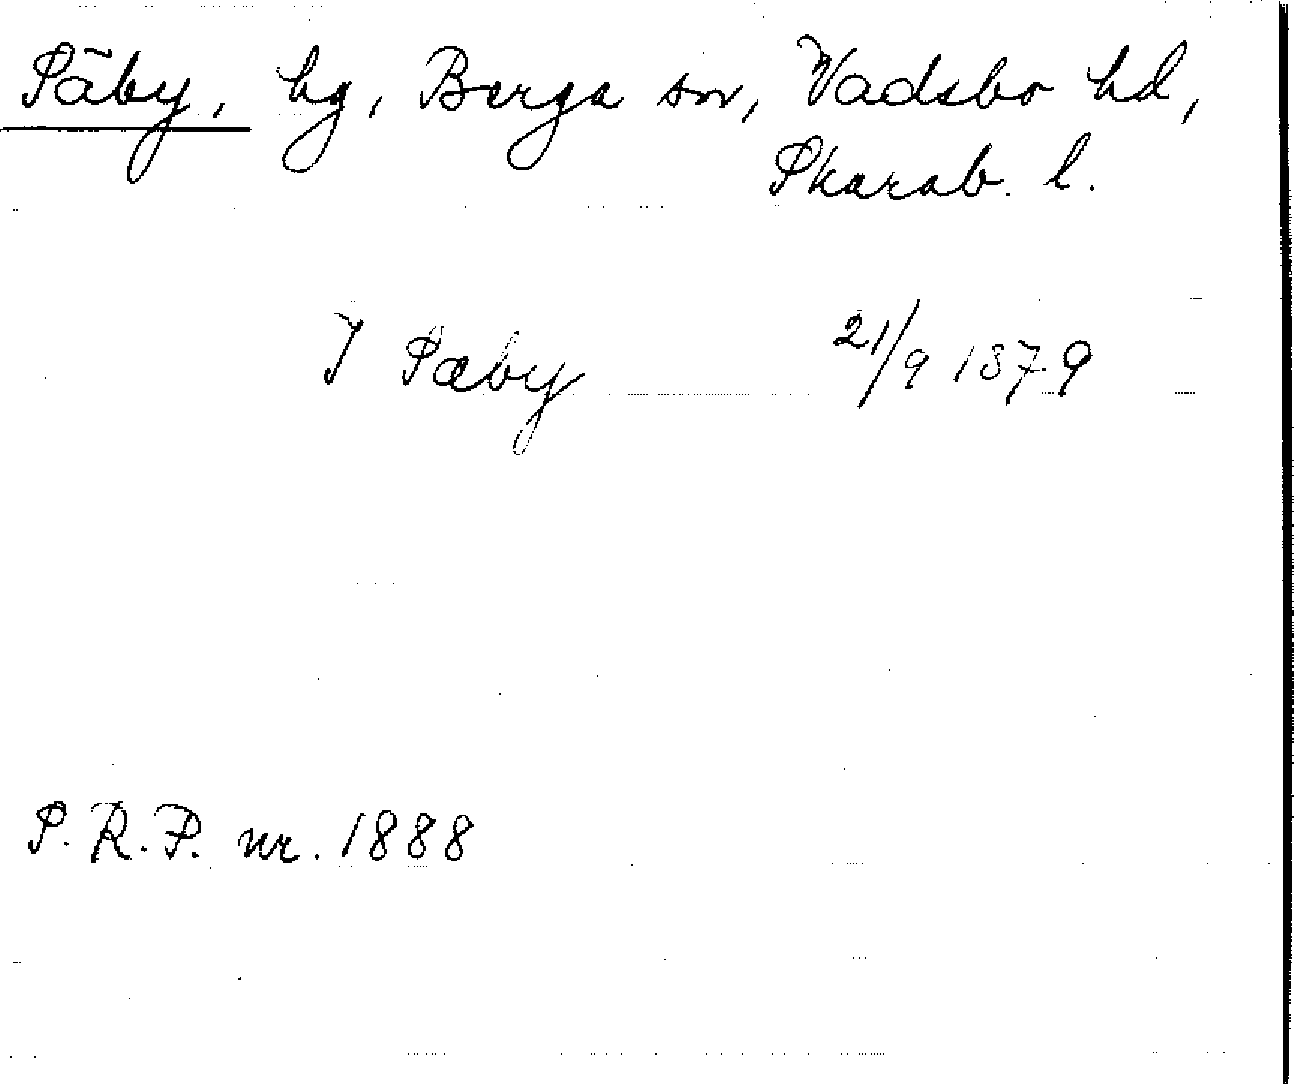 Säby, hg, Berga sn, Vadsbo hd,
Skarab. l.
I Sæby 21/9 1379
S.R.P. nr. 1888